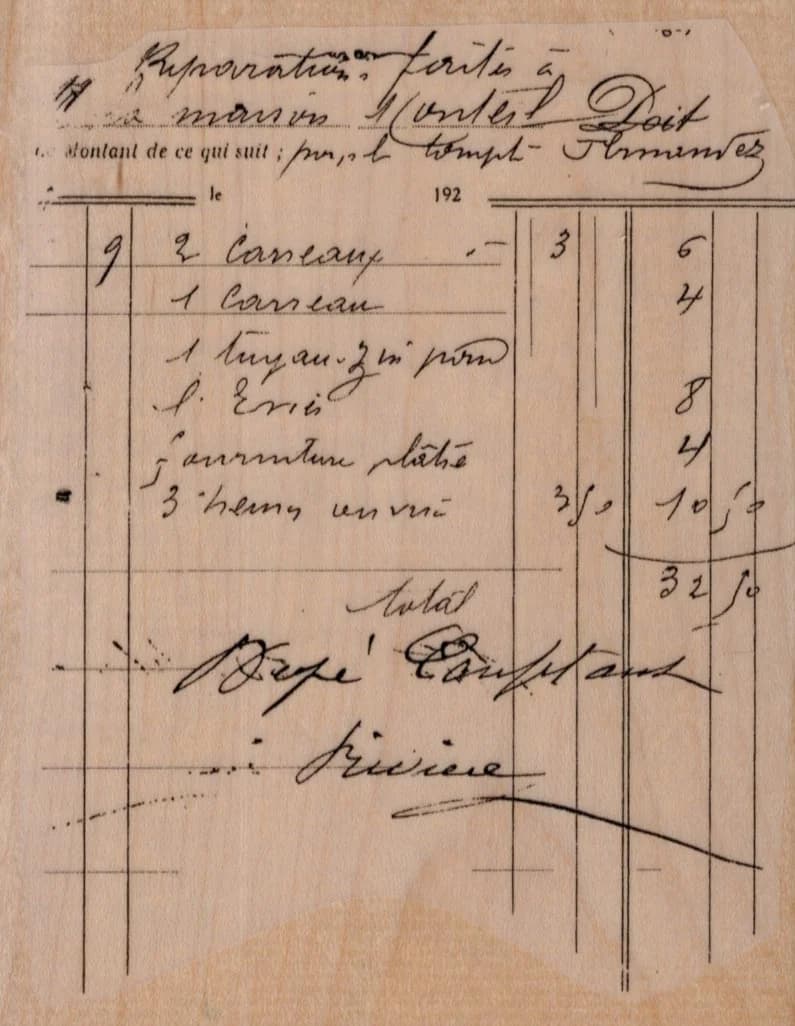 Réparations faites à
la maison Monteil Doit
Montant de ce qui suit ; pour le compte Fernandez
le 192
9 2 Carreaux 3 6
1 Carreau 4
1 tuyau zin pour
l'Evié 8
fourniture plâtre 4
3 heures ouvrié 3 50 10 50
32 50
total
Payé Comptant
Rivière